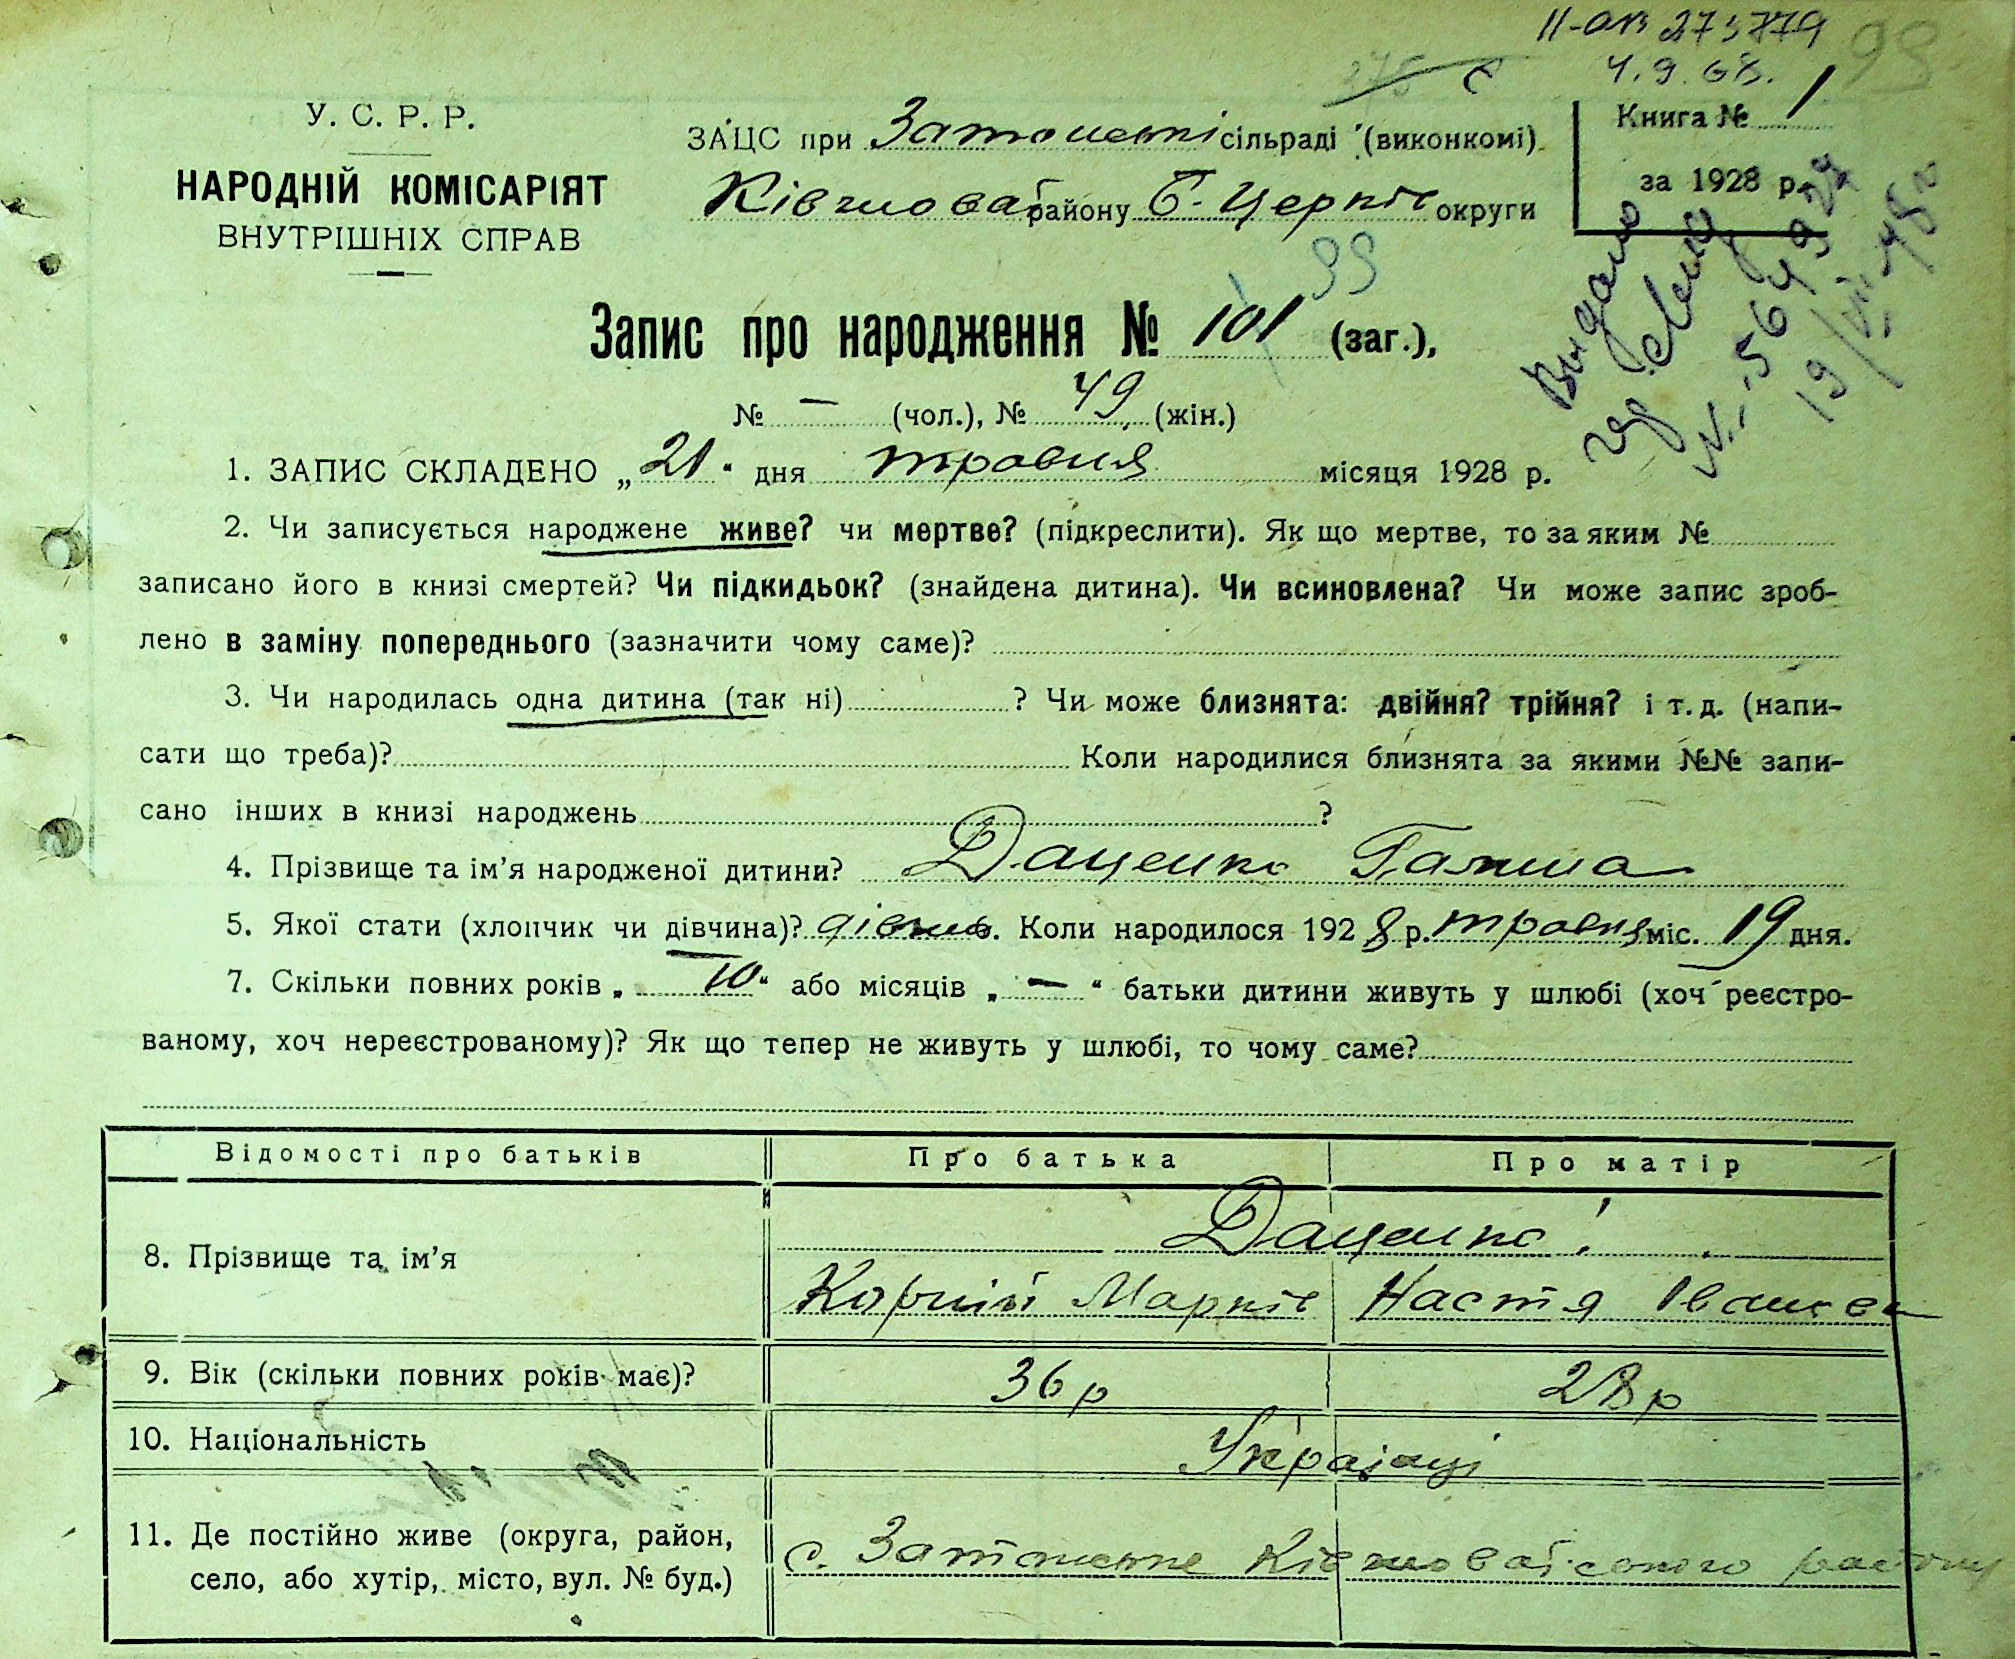 98
4.9.68.
У. С. Р. Р.
НАРОДНІЙ КОМІСАРІЯТ
ВНУТРІШНІХ СПРАВ
ЗАЦС при сільраді (виконкомі)
району Б. Церків округи
Книга № 1
за 1928 р.
Выдано
99
Запис про народження № 101 (заг.),
№ — (чол.), № 49 (жін.)
1. ЗАПИС СКЛАДЕНО „21" дня травня місяця 1928 р.
2. Чи записується народжене живе? чи мертве? (підкреслити). Як що мертве, то за яким №
записано його в книзі смертей? Чи підкидьок? (знайдена дитина). Чи всиновлена? Чи може запис зроб-
лено в заміну попереднього (зазначити чому саме)?
3. Чи народилась одна дитина (так ні) ? Чи може близнята: двійня? трійня? і т. д. (напи-
сати що треба)? Коли народилися близнята за якими №№ запи-
сано інших в книзі народжень ?
4. Прізвище та ім'я народженої дитини? Даценко Галина
5. Якої стати (хлопчик чи дівчина)? Коли народилося 1928 р. травня міс. 19 дня.
7. Скільки повних років „ 10 " або місяців „ — " батьки дитини живуть у шлюбі (хоч реєстро-
ваному, хоч нереєстрованому)? Як що тепер не живуть у шлюбі, то чому саме?
Відомості про батьків Про батька Про матір
8. Прізвище та ім'я Даценко
Корній Марків Настя Іванова
9. Вік (скільки повних років має)? 36 р 28 р
10. Національність Українці
11. Де постійно живе (округа, район,
село, або хутір, місто, вул. № буд.) с. району